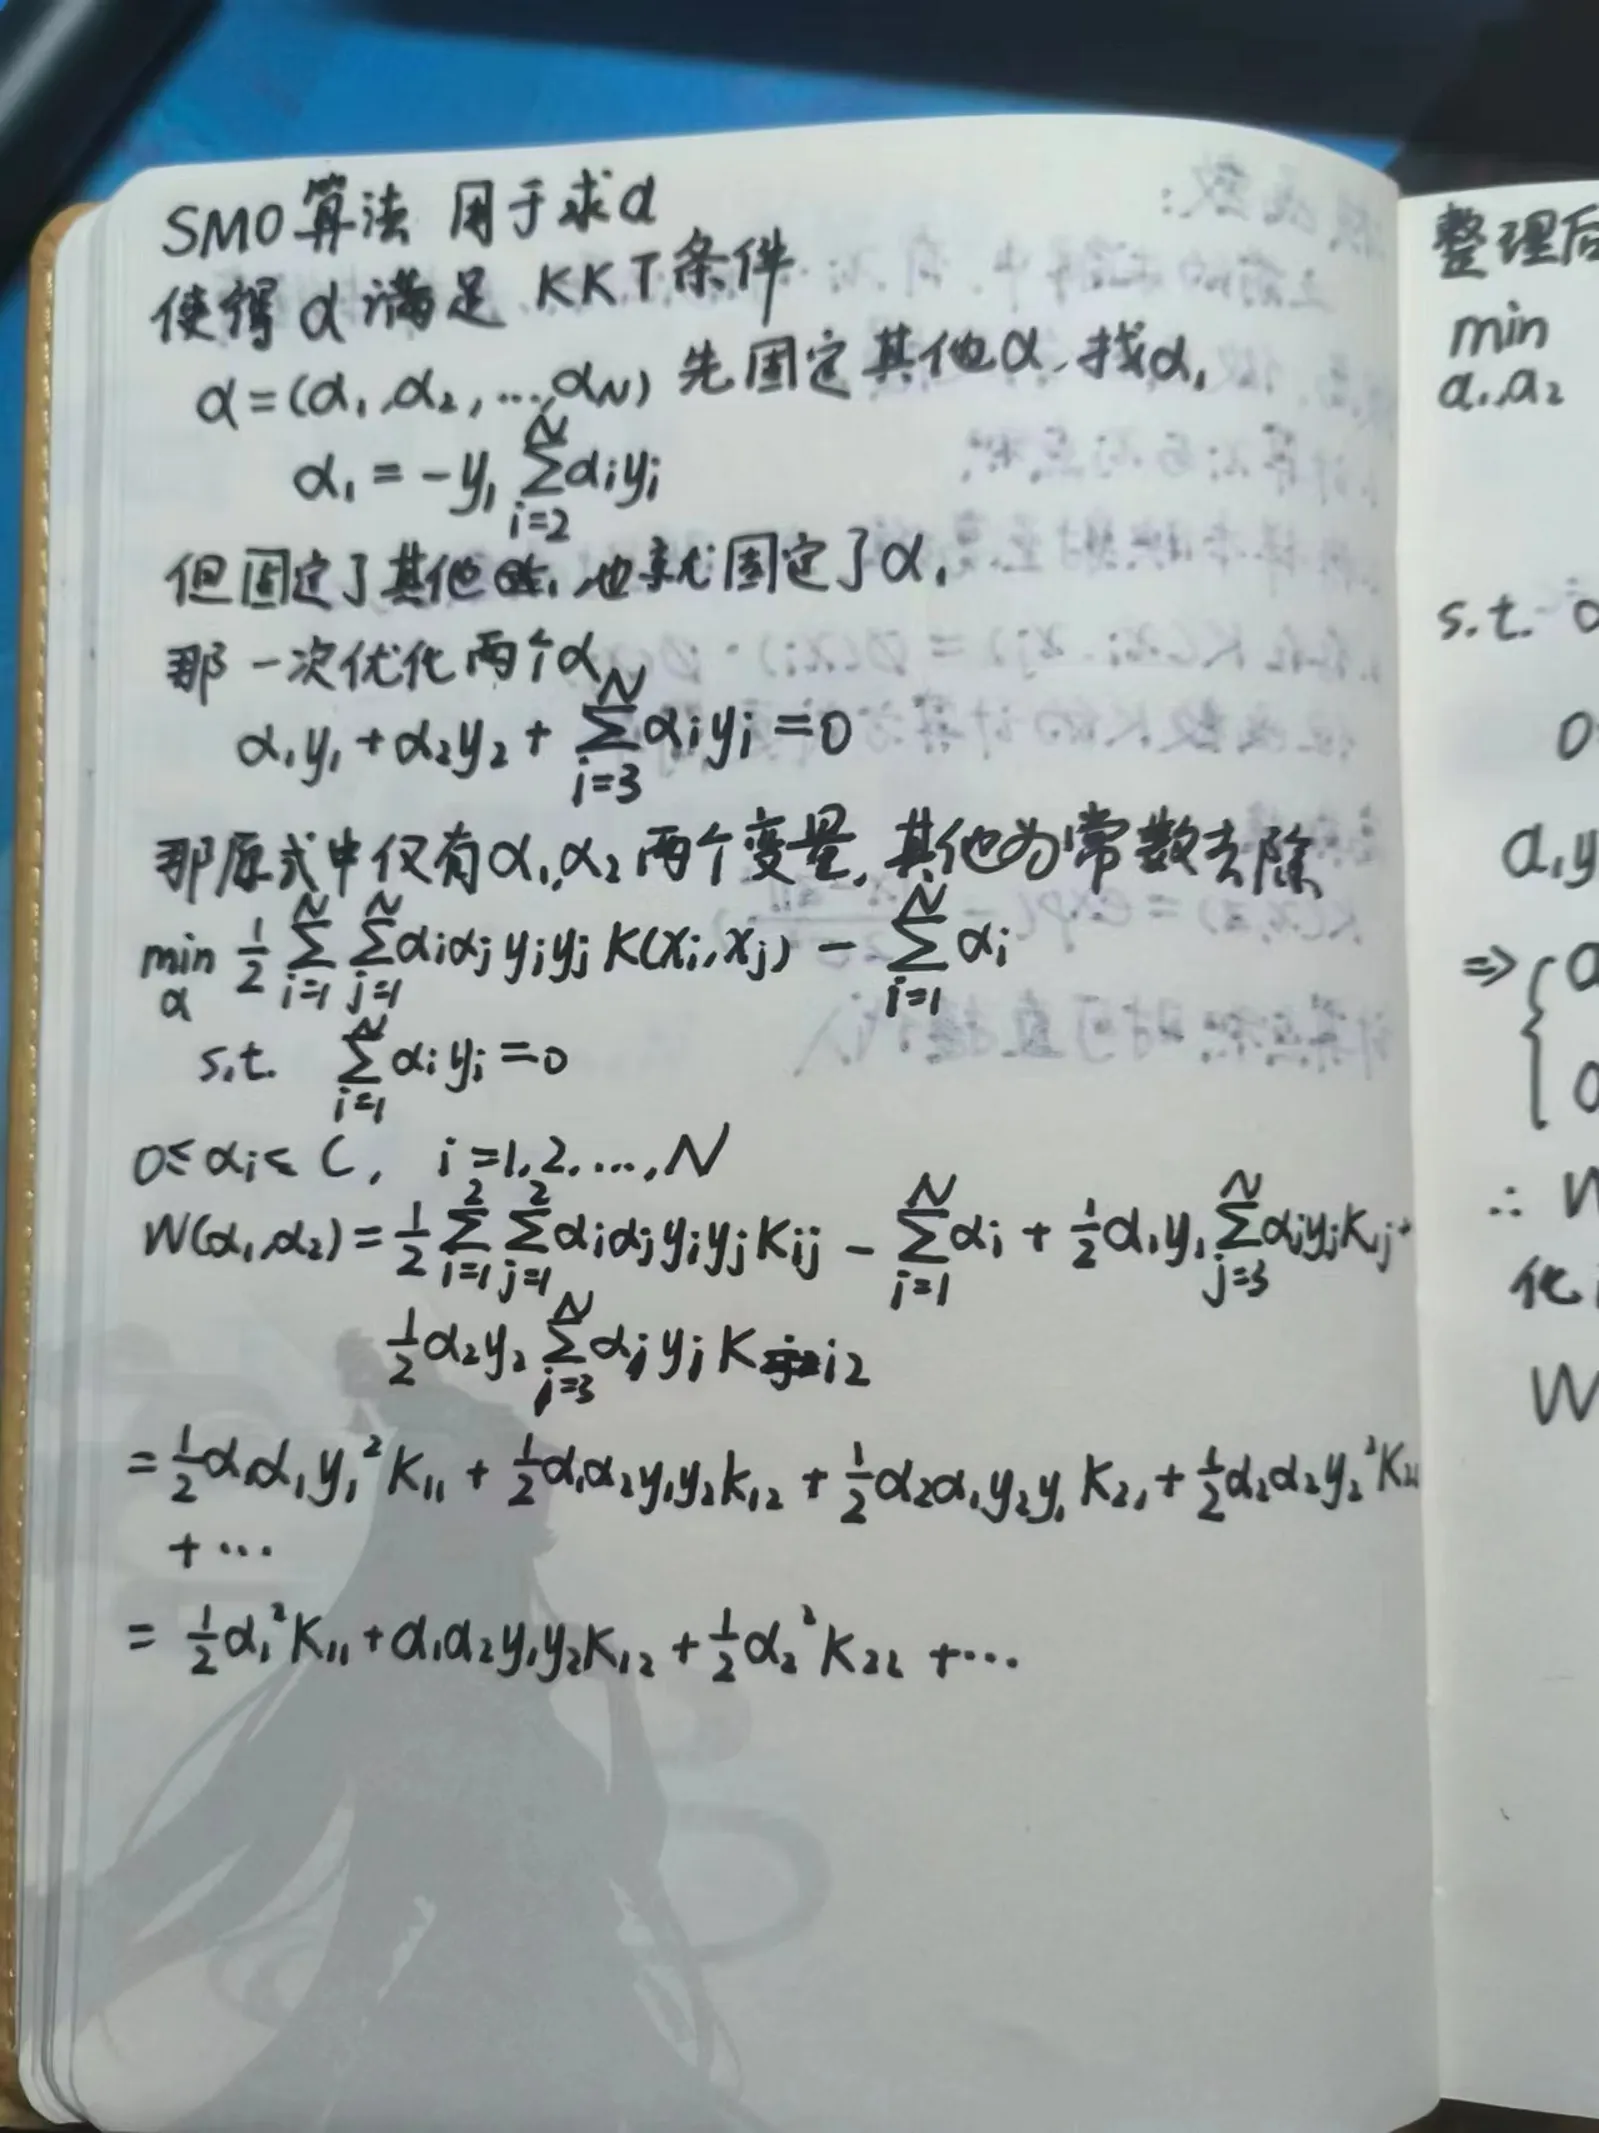 SMO算法 用于求α
使得α满足 KKT条件
α=(α₁,α₂,...,αN) 先固定其他α,找α₁
α₁ = -y₁ ∑_{i=2}^{N} αᵢyᵢ
但固定了其他 也就固定了α₁
那一次优化两个α
α₁y₁+α₂y₂+ ∑_{i=3}^{N} αᵢyᵢ=0
那原式中仅有α₁,α₂两个变量,其他为常数去除
min_α 1/2 ∑_{i=1}^{N} ∑_{j=1}^{N} αᵢαⱼyᵢyⱼK(xᵢ,xⱼ) - ∑_{i=1}^{N} αᵢ
s.t. ∑_{i=1}^{N} αᵢyᵢ=0
0≤αᵢ≤C, i=1,2,...,N
W(α₁,α₂)=1/2 ∑_{i=1}^{2} ∑_{j=1}^{2} αᵢαⱼyᵢyⱼKᵢⱼ - ∑_{i=1}^{N} αᵢ + 1/2 α₁y₁ ∑_{j=3}^{N} αⱼyⱼK₁ⱼ+
1/2 α₂y₂ ∑_{j=3}^{N} αⱼyⱼK i2
=1/2 α₁α₁y₁²K₁₁ + 1/2 α₁α₂y₁y₂K₁₂ + 1/2 α₂α₁y₂y₁K₂₁ + 1/2 α₂α₂y₂²K₂₂
+...
= 1/2 α₁²K₁₁+α₁α₂y₁y₂K₁₂+1/2 α₂²K₂₂+...
整理后
min
α₁,α₂
s.t.
0
α₁y
⇒{
∴ W
化
W